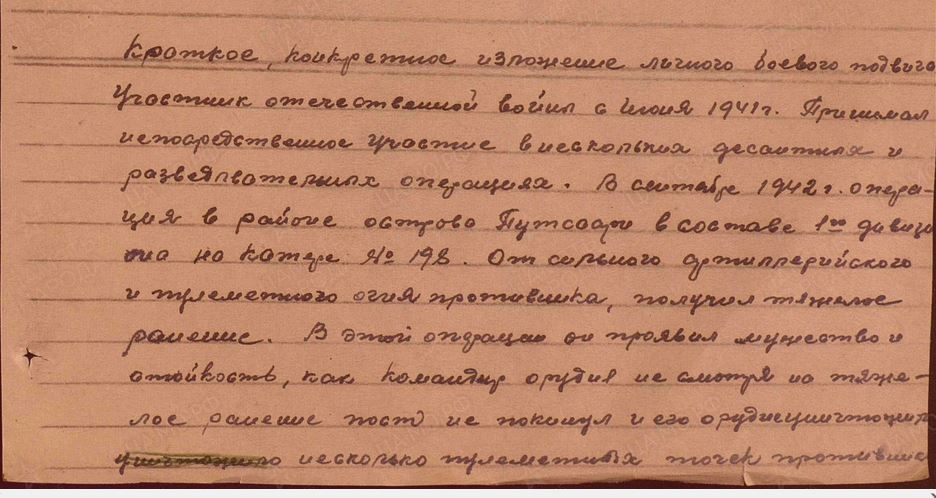 Краткое, конкретное изложение личного боевого подвига
Участник отечественной войны с Июня 1941г. Принимал
непосредственное участие в нескольких десантных и
разведывательных операциях. В сентябре 1942г. опера-
ция в районе острова Путсаари в составе 1го дивизи
она на катере № 198. От сильного артиллерийского
и пулеметного огня противника, получил тяжелое
ранение. В этой операции он проявил мужество и
стойкость, как командир орудия не смотря на тяже-
лое ранение пост не покинул и его орудие уничтожило
уничтожило несколько пулеметных точек противника